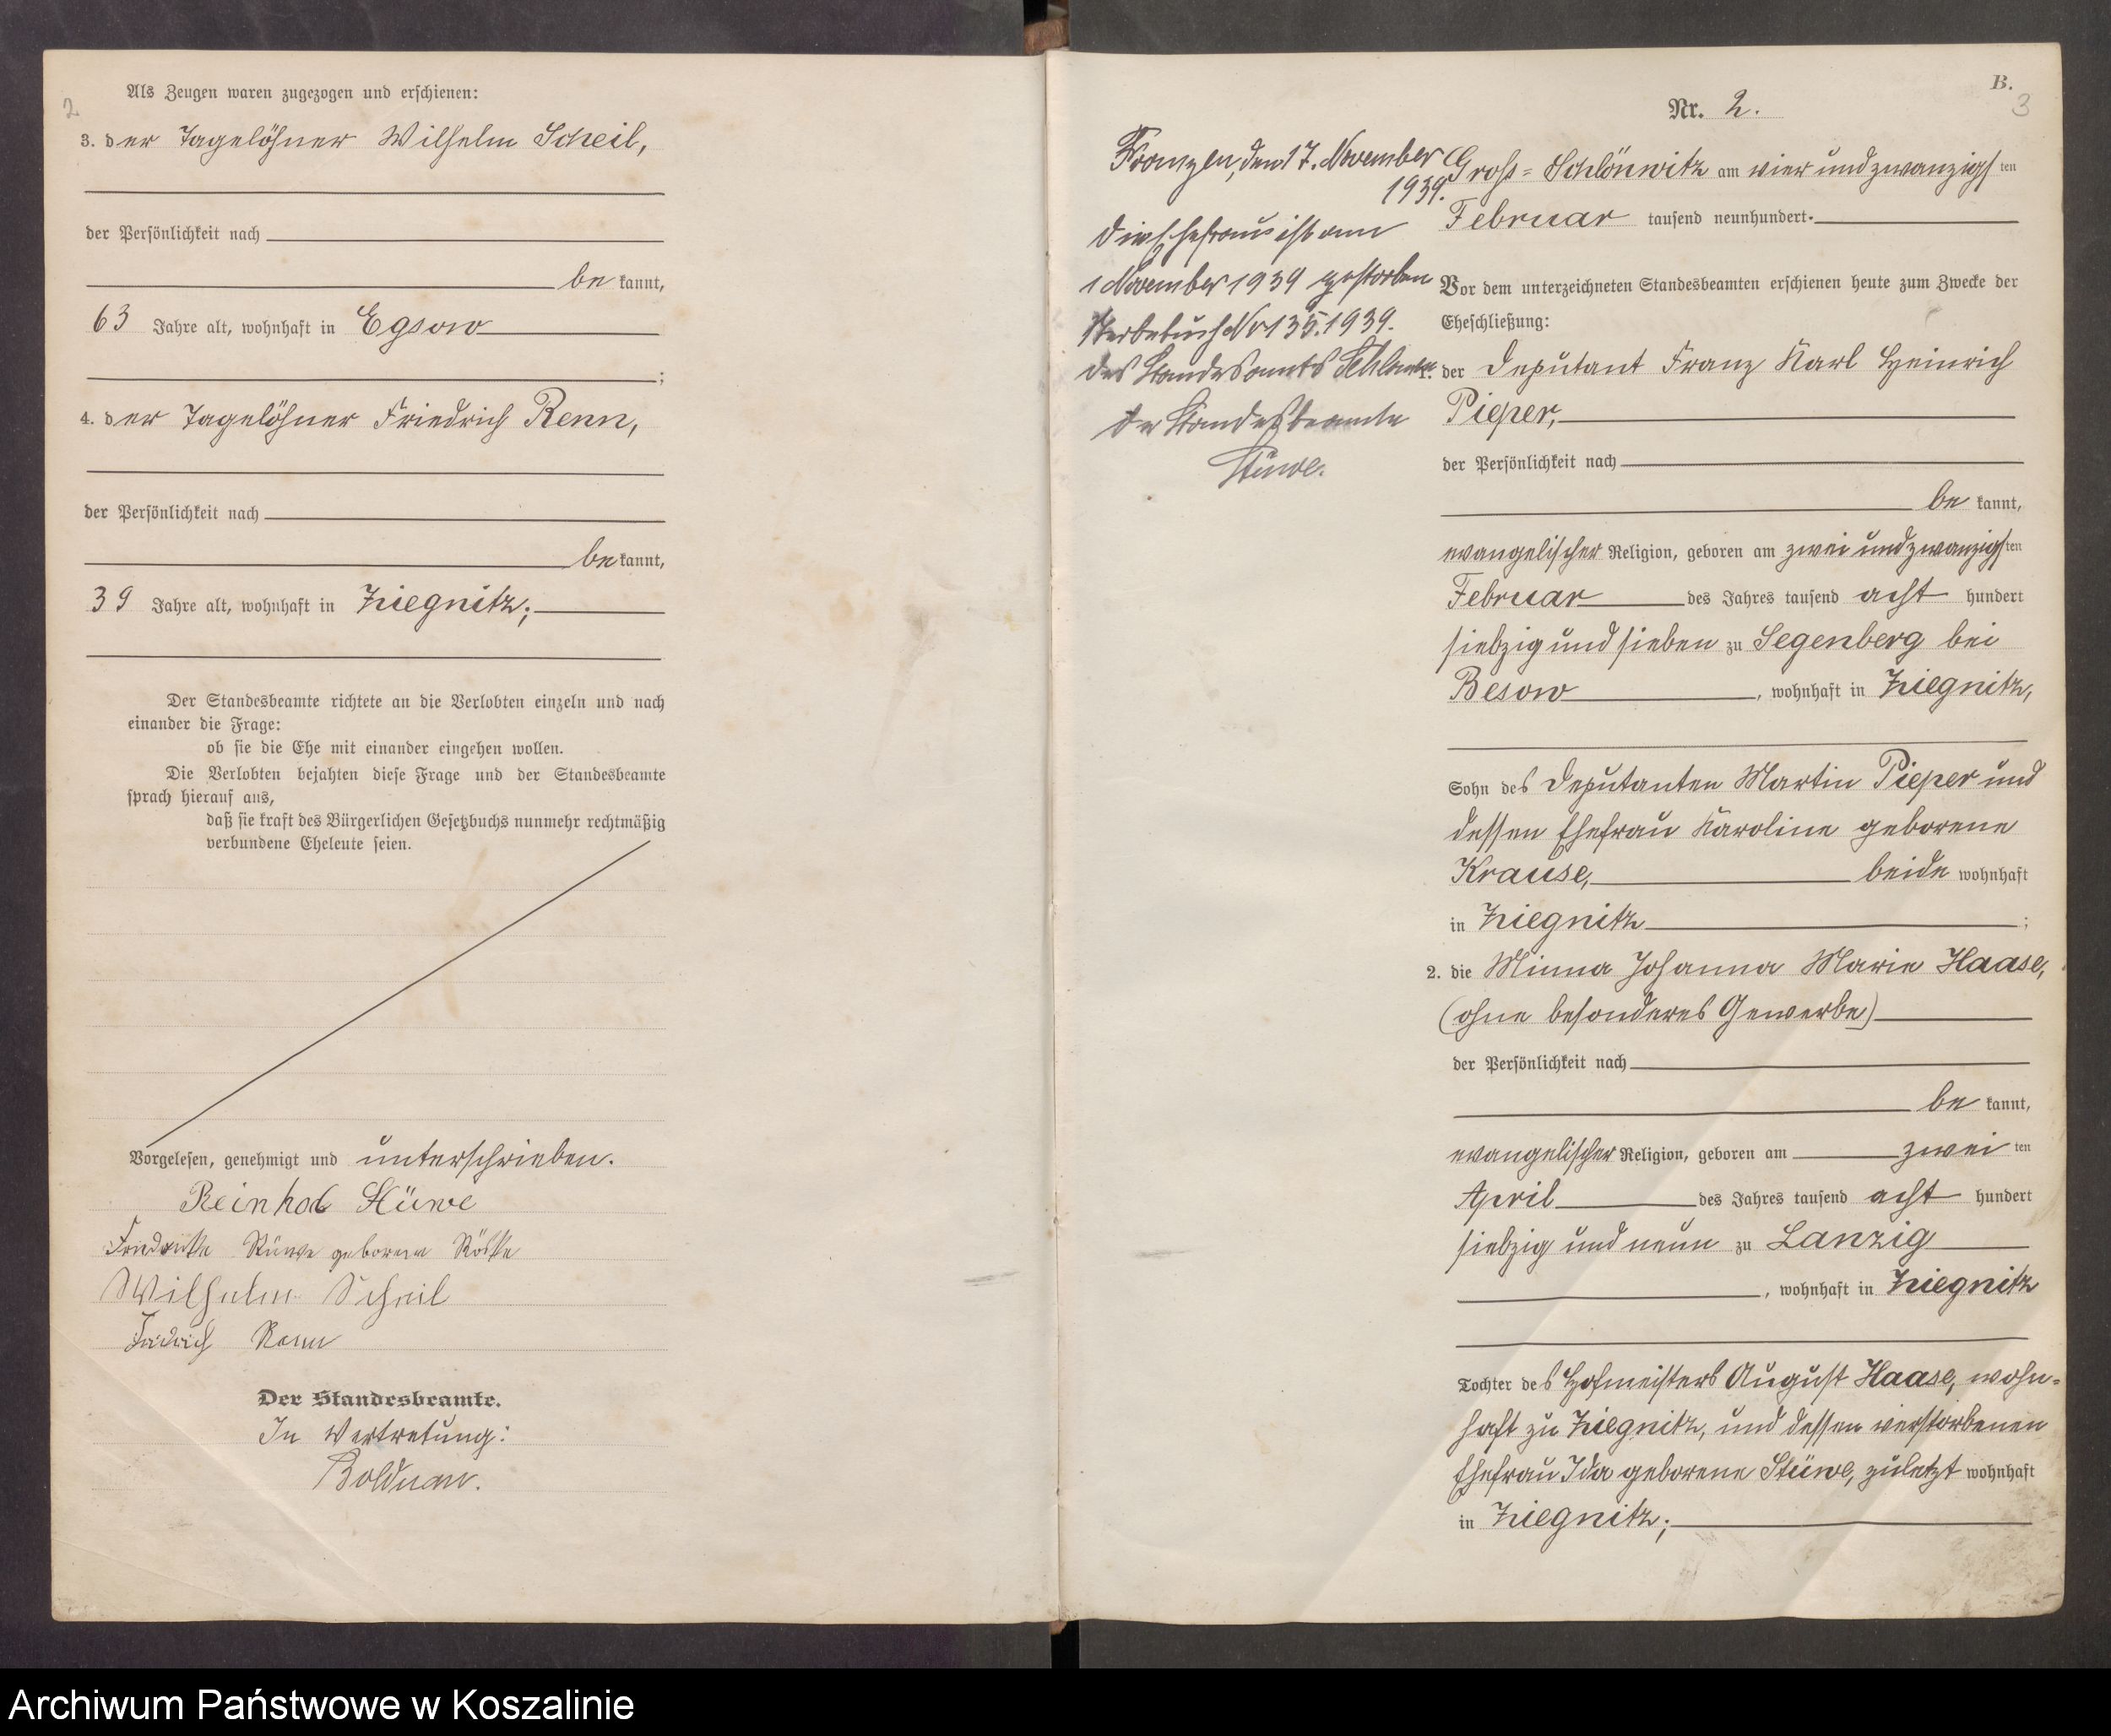 2
Als Zeugen waren zugezogen und erschienen:
3. der Tagelöhner Wilhelm Scheil,
der Persönlichkeit nach
be kannt,
63 Jahre alt, wohnhaft in Egsow
;
4. der Tagelöhner Friedrich Renn,
der Persönlichkeit nach
be kannt,
39 Jahre alt, wohnhaft in Ziegnitz;
Der Standesbeamte richtete an die Verlobten einzeln und nach
einander die Frage:
ob sie die Ehe mit einander eingehen wollen.
Die Verlobten bejahten diese Frage und der Standesbeamte
sprach hierauf aus,
daß sie kraft des Bürgerlichen Gesetzbuchs nunmehr rechtmäßig
verbundene Eheleute seien.
Vorgelesen, genehmigt und unterschrieben.
Reinhold Stüwe
Friedrike Stüwe geborene Röske
Wilhelm Scheil
Fridrich Renn
Der Standesbeamte.
In Vertretung:
Bolduan.
B.
3
Nr. 2.
Franzen, den 17. November
1939.
Die Ehefrau ist am
1 November 1939 gestorben
Sterbebuch Nr 135.1939.
des Standesamts Schlawe.
Der Standesbeamte
Stüwe.
Gross-Schlönwitz am vier und zwanzigsten
Februar tausend neunhundert.
Vor dem unterzeichneten Standesbeamten erschienen heute zum Zwecke der
Eheschließung:
1. der Deputant Franz Karl Heinrich
Pieper,
der Persönlichkeit nach
be kannt,
evangelischer Religion, geboren am zwei und zwanzigsten
Februar des Jahres tausend acht hundert
siebzig und sieben zu Segenberg bei
Besow, wohnhaft in Ziegnitz,
Sohn des Deputanten Martin Pieper und
dessen Ehefrau Karoline geborene
Krause, beide wohnhaft
in Ziegnitz;
2. die Minna Johanna Marie Haase,
(ohne besonderes Gewerbe)
der Persönlichkeit nach
be kannt,
evangelischer Religion, geboren am zwei ten
April des Jahres tausend acht hundert
siebzig und neun zu Lanzig
, wohnhaft in Ziegnitz
Tochter des Hofmeisters August Haase, wohn-
haft zu Ziegnitz, und dessen verstorbenen
Ehefrau Ida geborene Stüwe, zuletzt wohnhaft
in Ziegnitz;
Archiwum Państwowe w Koszalinie